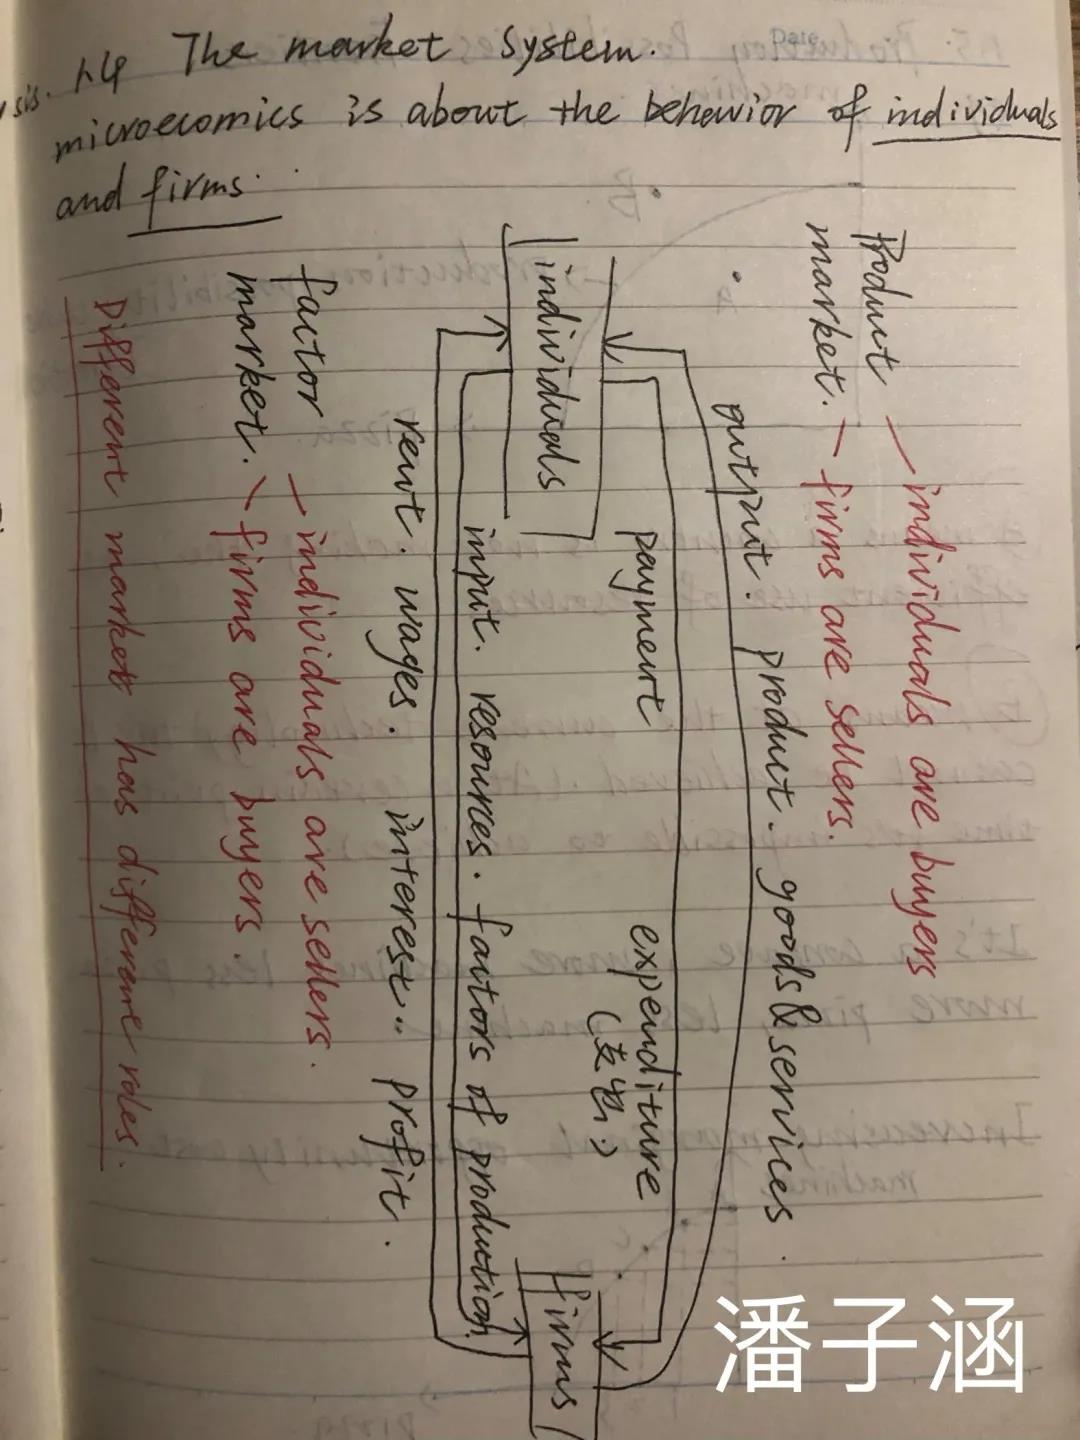 Date
1.4 The market system.
sis.
microecomics is about the behavior of individuals
and firms.
Product
market.
individuals are buyers
firms are sellers.
output. product. goods & services.
payment expenditure
(支出)
individuals
firms
input. resources. factors of production.
rent. wages. interest.. profit.
factor
market.
individuals are sellers.
firms are buyers.
Different markets has difference roles.
潘子涵